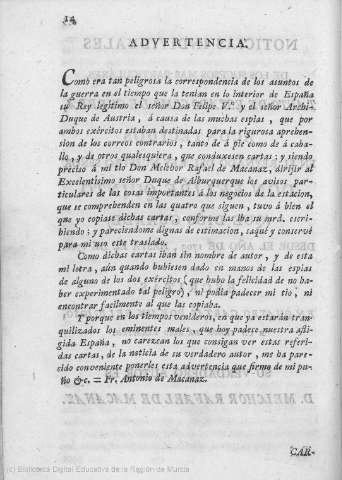 14
ADVERTENCIA.
Como era tan peligrosa la correspondencia de los asuntos de
la guerra en el tiempo que la tenian en lo interior de España
su Rey legítimo el señor Don Felipe V.º y el señor Archi-
Duque de Austria, á causa de las muchas espias, que por
ambos exércitos estaban destinadas para la rigurosa aprehen-
sion de los correos contrarios, tanto de á pie como de á caba-
llo, y de otros qualesquiera, que conduxesen cartas: y siendo
preciso á mi tio Don Melchor Rafael de Macanaz, dirijir al
Excelentísimo señor Duque de Alburquerque los avisos par-
ticulares de las cosas importantes á los negocios de la estacion,
que se comprehenden en las quatro que siguen, tuvo á bien el
que yo copiase dichas cartas, conforme las iba su mrd. escri-
biendo: y pareciendome dignas de estimacion, saqué y conservé
para mi uso este traslado.
Como dichas cartas iban sin nombre de autor, y de esta
mi letra, aún quando hubiesen dado en manos de las espias
de alguno de los dos exércitos (que hubo la felicidad de no ha-
ber experimentado tal peligro), ni podia padecer mi tio, ni
encontrar facilmente al que las copiaba.
Y porque en los tiempos venideros, en que ya estarán tran-
quilizados los eminentes males, que hoy padece nuestra afli-
gida España, no carezcan los que consigan ver estas referi-
das cartas, de la noticia de su verdadero autor, me ha pare-
cido conveniente ponerles esta advertencia que firmo de mi pu-
ño &c. = Fr. Antonio de Macanaz.
CAR-
(c) Biblioteca Digital Educativa de la Región de Murcia